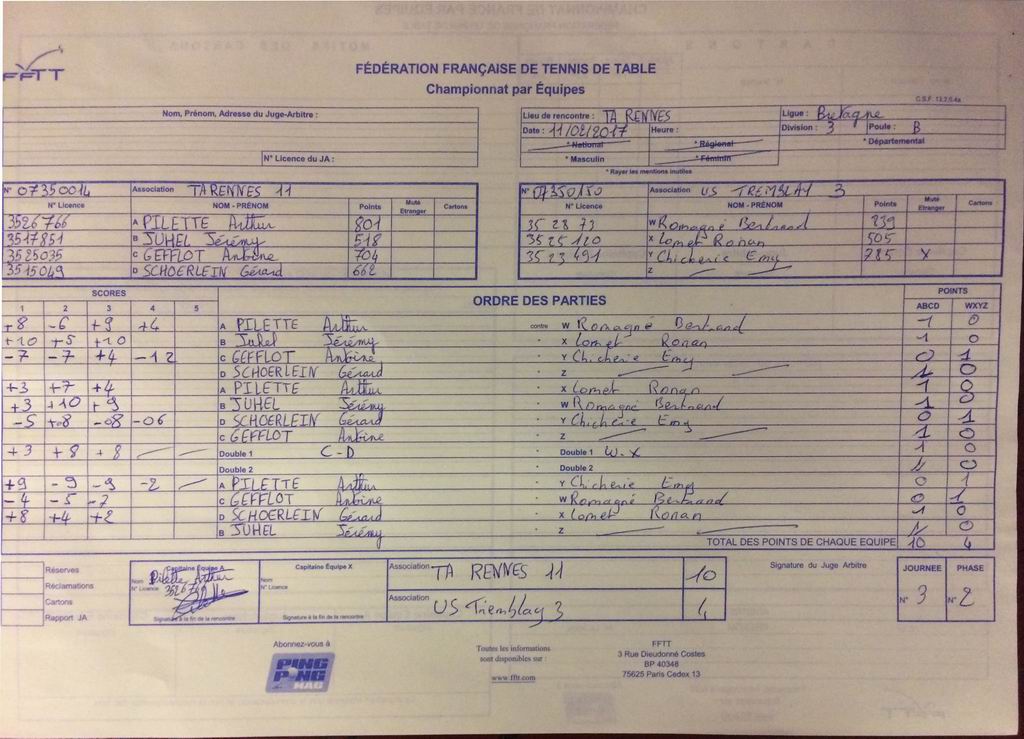 FFTT
FÉDÉRATION FRANÇAISE DE TENNIS DE TABLE
Championnat par Équipes
C.S.F. 13.2.6.4a
Nom, Prénom, Adresse du Juge-Arbitre :
N° Licence du JA :
Lieu de rencontre : TA RENNES
Ligue : Bretagne
Date : 11/02/2017 Heure :
Division : 3 Poule : B
* National * Régional * Départemental
* Masculin * Féminin
* Rayer les mentions inutiles
N° 07350014 Association TA RENNES 11
N° Licence NOM - PRÉNOM Points Muté Etranger Cartons
3526766 A PILETTE Arthur 801
3517851 B JUHEL Jérémy 518
3525035 C GEFFLOT Antoine 704
3515049 D SCHOERLEIN Gérard 662
N° 07350180 Association US TREMBLAY 3
N° Licence NOM - PRÉNOM Points Muté Etranger Cartons
35 28 73 W Romagné Bertrand 839
35 25 120 X Lomet Ronan 505
35 23 491 Y Chicherie Emy 785 X
Z
SCORES ORDRE DES PARTIES POINTS
1 2 3 4 5 ABCD WXYZ
+8 -6 +9 +4 A PILETTE Arthur contre W Romagné Bertrand 1 0
+10 +5 +10 B Juhel Jérémy X Lomet Ronan 1 0
-7 -7 +4 -12 C GEFFLOT Antoine Y Chicherie Emy 0 1
D SCHOERLEIN Gérard Z 1 0
+3 +7 +4 A PILETTE Arthur X Lomet Ronan 1 0
+3 +10 +9 B JUHEL Jérémy W Romagné Bertrand 1 0
-5 +08 -08 -06 D SCHOERLEIN Gérard Y Chicherie Emy 0 1
C GEFFLOT Antoine Z 1 0
+3 +8 +8 Double 1 C-D Double 1 W-X 1 0
Double 2 Double 2 1 0
+9 -9 -9 -2 A PILETTE Arthur Y Chicherie Emy 0 1
-4 -5 -2 C GEFFLOT Antoine W Romagné Bertrand 0 1
+8 +4 +2 D SCHOERLEIN Gérard X Lomet Ronan 1 0
B JUHEL Jérémy Z 1 0
TOTAL DES POINTS DE CHAQUE EQUIPE 10 4
Réserves
Réclamations
Cartons
Rapport JA
Capitaine Équipe A
Nom Pilette Arthur
N° Licence
Signature à la fin de la rencontre
Capitaine Équipe X
Nom
N° Licence
Signature à la fin de la rencontre
Association TA RENNES 11 10
Association US Tremblay 3 4
Signature du Juge Arbitre
JOURNEE PHASE
N° 3 N° 2
Abonnez-vous à
PING PONG MAG
Toutes les informations
sont disponibles sur :
www.fftt.com
FFTT
3 Rue Dieudonné Costes
BP 40348
75625 Paris Cedex 13